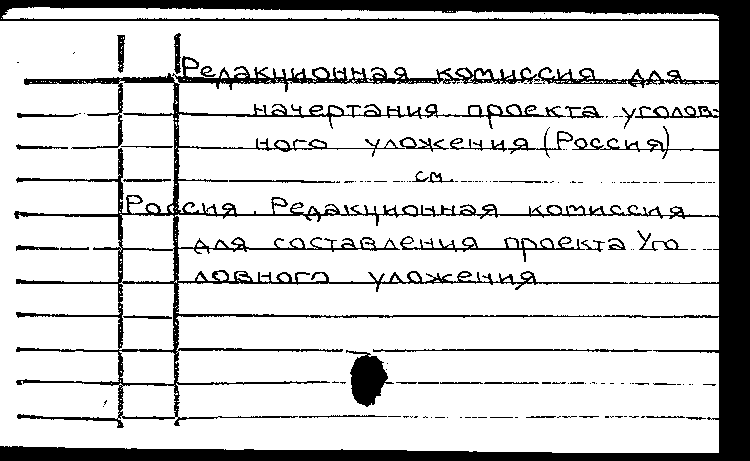 Редакционная комиссия для
начертания проекта уголов-
ного уложения (Россия)
см.
Россия. Редакционная комиссия
для составления проекта Уго
ловного уложения